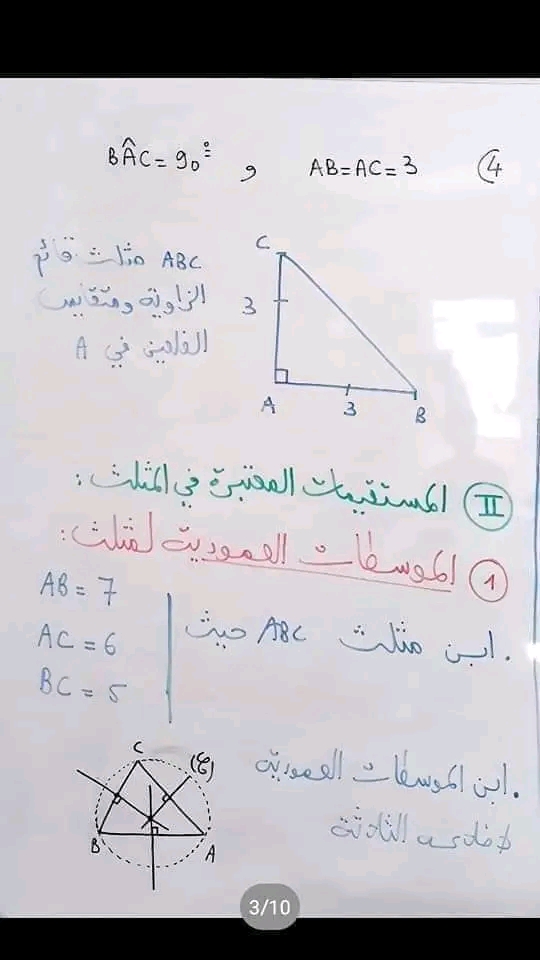 ④ AB=AC=3 و BÂC=90°
ABC مثلث قائم
الزاوية ومتقايس
الضلعين في A
C
3
A
3
B
II المستقيمات المعتبرة في المثلث:
① الموسطات العمودية لمثلث:
. ابن مثلث ABC حيث
AB = 7
AC = 6
BC = 5
. ابن الموسطات العمودية
لأضلاعه الثلاثة
C
(ع)
B
A
3/10